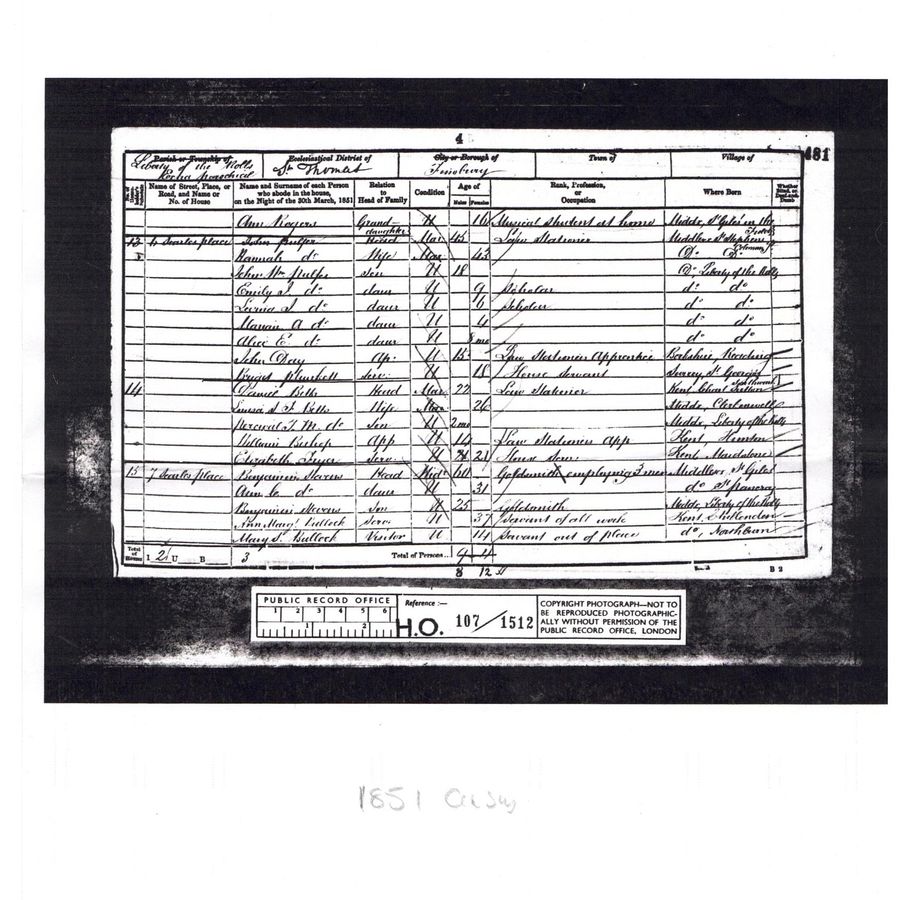 4
481
Parish or Township of Ecclesiastical District of City or Borough of Town of Village of
Liberty of the Rolls St Thomas Finsbury
No. of House-holder's Schedule Name of Street, Place, or Road, and Name or No. of House Name and Surname of each Person who abode in the house, on the Night of the 30th March, 1851 Relation to Head of Family Condition Age of Males Females Rank, Profession, or Occupation Where Born Whether Blind, or Deaf-and-Dumb
Ann Rogers Grand-daughter U 16 Musical Student at home Middx, St Giles in the Fields
13 6 Searles place John Head Mar 45 Law Stationer Middlesex St Stephen Coleman
Hannah do Wife Mar 43 Do Do
John Wm Son U 18 Do Liberty of the Rolls
Emily J. do daur U 9 Scholar do do
do daur U 6 Scholar do do
Marian A do daur U 4 do do
Alice E. do daur U 8 mo do do
John Day Ap. U 15 Law Stationers Apprentice Berkshire, Reading
Serv. U 18 House Servant Surrey, St Georges Southwark
14 Daniel Betts Head Mar 22 Law Stationer Kent, Chart Sutton
Louisa Betts Wife Mar 26 Middx, Clerkenwell
Percival T. M. do Son U 2 mo Middx, Liberty of the Rolls
William Bishop App U 14 Law Stationers App Kent,
Elizabeth Serv U 21 House Serv Kent Maidstone
15 7 Searles place Benjamin Stevens Head Wid 60 Goldsmith employing 3 men Middlesex St Giles
Ann C. do daur U 31 do St Pancras
Benjamin Stevens Son U 25 Goldsmith Middx, Liberty of the Rolls
Ann Mary Bullock Serv. U 37 Servant of all work Kent,
Mary S. Bullock Visitor U 14 Servant out of place do, Northburn
Total of Houses I 2 U B 3 Total of Persons.. 9 4
8 12
B 2
PUBLIC RECORD OFFICE
1 2 3 4 5 6
1 2
Reference :—
H.O. 107/1512
COPYRIGHT PHOTOGRAPH—NOT TO
BE REPRODUCED PHOTOGRAPHIC-
ALLY WITHOUT PERMISSION OF THE
PUBLIC RECORD OFFICE, LONDON
1851 Census